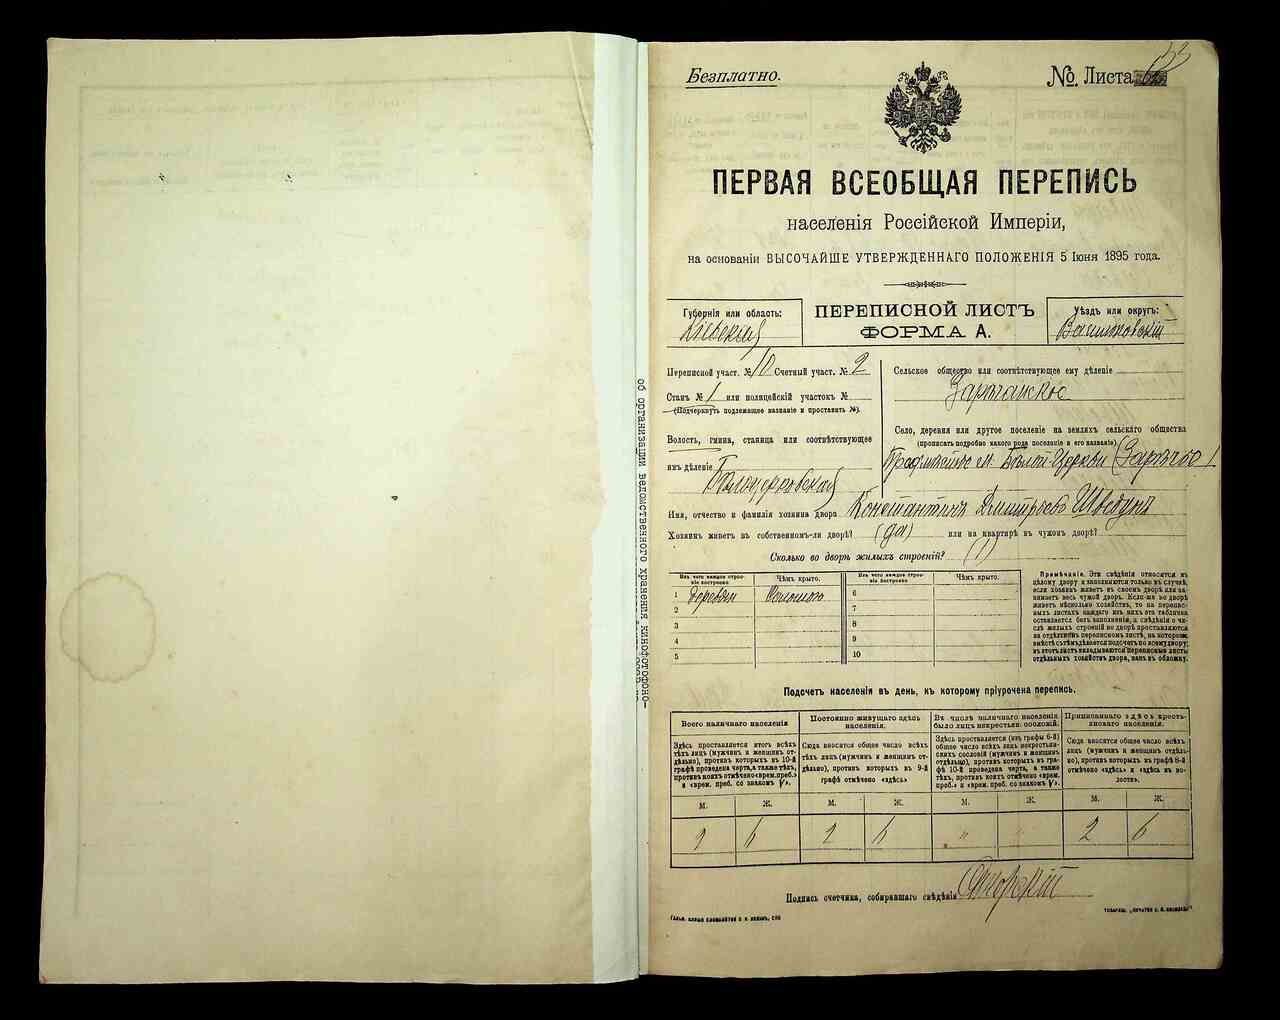 Безплатно.
№ Листа 53
ПЕРВАЯ ВСЕОБЩАЯ ПЕРЕПИСЬ
населенія Россійской Имперіи,
на основаніи ВЫСОЧАЙШЕ УТВЕРЖДЕННАГО ПОЛОЖЕНІЯ 5 Іюня 1895 года.
Губернія или область:
Кіевская
ПЕРЕПИСНОЙ ЛИСТЪ
ФОРМА А.
Уѣздъ или округъ:
Васильковскій
Переписной участ. № 10 Счетный участ. № 2
Станъ № 1 или полицейскій участокъ №
(Подчеркнуть подлежащее названіе и проставить №).
Волость, гмина, станица или соотвѣтствующее
имъ дѣленіе
Бѣлоцерковская
Сельское общество или соотвѣтствующее ему дѣленіе
Зарѣчанское
Село, деревня или другое поселеніе на земляхъ сельскаго общества
(прописать подробно какого рода поселеніе и его названіе)
м. Бѣлой-Церкви (Зарѣчье)
Имя, отчество и фамилія хозяина двора Константинъ Дмитріевъ Шведунъ
Хозяинъ живетъ въ собственномъ-ли дворѣ? (да) или на квартирѣ въ чужомъ дворѣ?
Сколько во дворѣ жилыхъ строеній? (1)
Изъ чего каждое строе-
ніе построено
Чѣмъ крыто.
Изъ чего каждое строе-
ніе построено
Чѣмъ крыто.
1 Деревян Соломою 6
2 7
3 8
4 9
5 10
Примѣчаніе. Эти свѣдѣнія относятся къ
цѣлому двору и заполняются только въ случаѣ,
если хозяинъ живетъ въ своемъ дворѣ или за-
нимаетъ весь чужой дворъ. Если-же во дворѣ
живетъ нѣсколько хозяйствъ, то на перепис-
ныхъ листахъ каждаго изъ нихъ эта табличка
оставляется безъ заполненія, а свѣдѣнія о чи-
слѣ жилыхъ строеній во дворѣ проставляются
на отдѣльномъ переписномъ листѣ, на которомъ
вмѣстѣ съ тѣмъ дѣлается подсчетъ по всему двору;
въ этотъ листъ вкладываются переписные листы
отдѣльныхъ хозяйствъ двора, какъ въ обложку.
Подсчетъ населенія въ день, къ которому пріурочена перепись.
Всего наличнаго населенія
Здѣсь проставляется итогъ всѣхъ
тѣхъ лицъ (мужчинъ и женщинъ от-
дѣльно), противъ которыхъ въ 10-й
графѣ проведена черта, а также тѣхъ,
противъ коихъ отмѣчено «врем. преб.»
и «врем. преб. со знакомъ V».
Постоянно живущаго здѣсь
населенія.
Сюда вносится общее число всѣхъ
тѣхъ лицъ (мужчинъ и женщинъ от-
дѣльно), противъ которыхъ въ 9-й
графѣ отмѣчено «здѣсь»
Въ числѣ наличнаго населенія
было лицъ некрестьян. сословій.
Здѣсь проставляется (изъ графы 6-й)
общее число всѣхъ лицъ некрестьян-
скихъ сословій (мужчинъ и женщинъ
отдѣльно), противъ которыхъ въ гра-
фѣ 10-й проведена черта, а также
тѣхъ, противъ коихъ отмѣчено «врем.
преб.» и «врем. преб. со знакомъ V».
Приписаннаго здѣсь кресть-
янскаго населенія.
Сюда вносится общее число всѣхъ
лицъ (мужчинъ и женщинъ отдѣль-
но), противъ которыхъ въ графѣ 8-й
отмѣчено «здѣсь» и «здѣсь въ во-
лости».
М. Ж. М. Ж. М. Ж. М. Ж.
2 6 2 6 " " 2 6
Подпись счетчика, собиравшаго свѣдѣнія
об организации ведомственного хранения кинофотофоно-